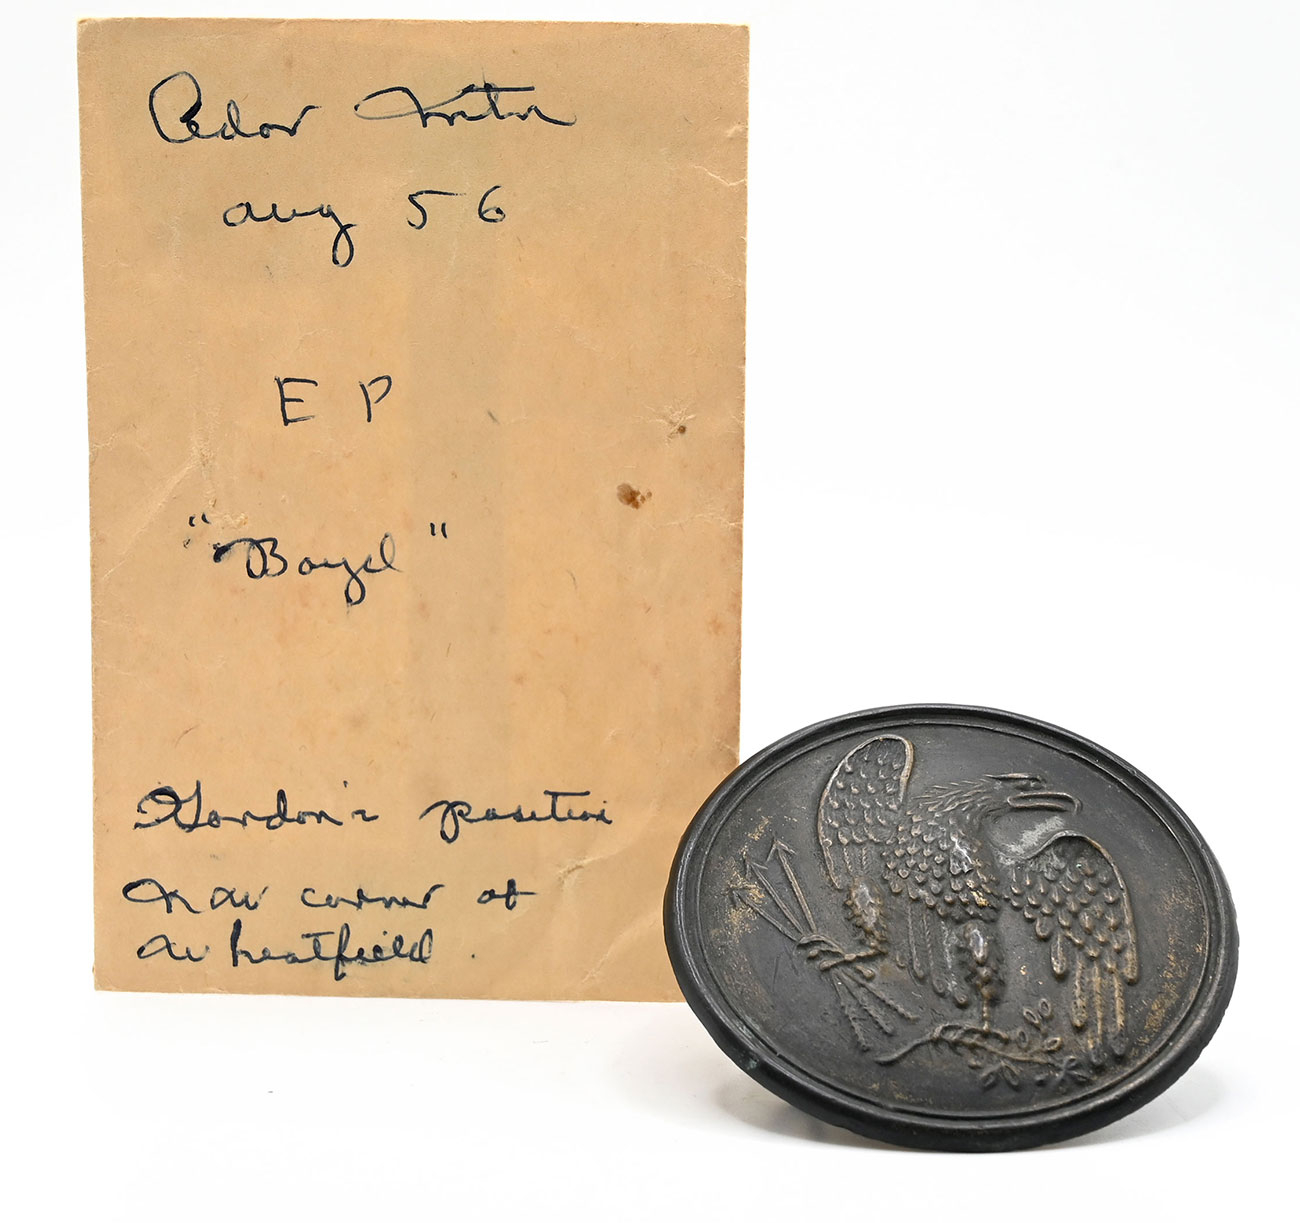 Cedar Mtn
aug 56
E P
"Boyd"
Gordon's position
corner of
wheatfield.